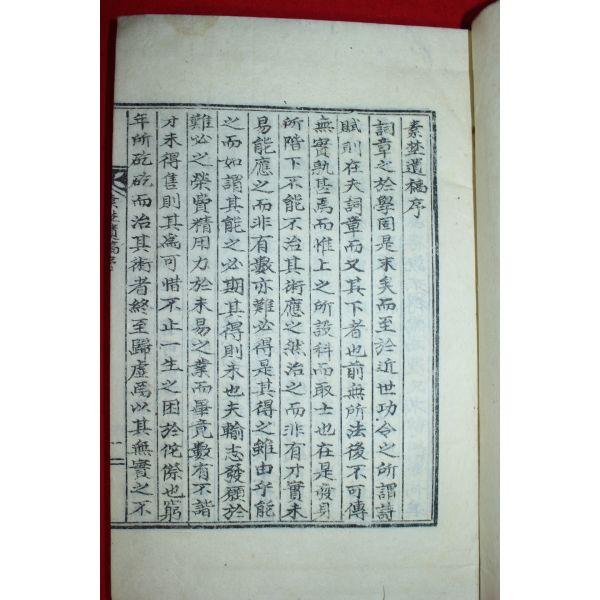 素埜遺稿序
詞章之於學固是末矣而至於近世功令之所謂詩
賦則在夫詞章而又其下者也前無所法後不可傳
無實孰甚焉而惟上之所設科而取士也在是發身
所階下不能不治其術應之然治之而非有才實未
易能應之而非有數亦難必得是其得之雖由乎能
之而如謂其能之必期其得則未也夫輸志發願於
難必之榮費精用力於未易之業而畢竟數有不諧
才未得售則其寃可惜不止一生之困於侘傺也窮
年所矻矻而治其術者終至歸虛焉以其無實之不
素埜遺稿序
一